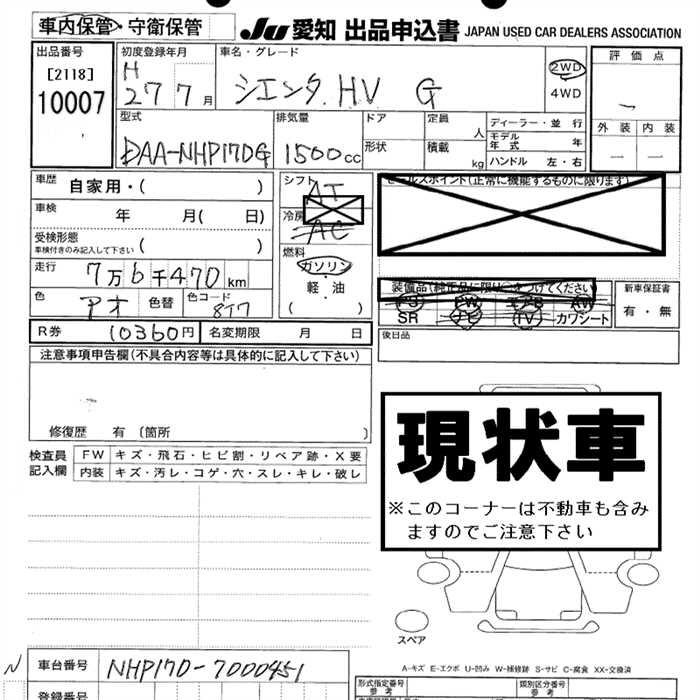 車内保管・守衛保管
JU 愛知 出品申込書 JAPAN USED CAR DEALERS ASSOCIATION
出品番号
[2118]
10007
初度登録年月
H 27 7月
車名・グレード
シエンタ HV G
2WD
4WD
評価点
—
外装 内装
— —
型式
DAA-NHP170G
排気量
1500cc
ドア
形状
定員 人
積載 kg
ディーラー・並行
モデル年式 年
ハンドル 左・右
車歴 自家用・( )
シフト AT
セールスポイント(正常に機能するものに限ります)
車検 年 月( 日)
冷房 AC
受検形態
車検付きのみ記入して下さい ( )
燃料
ガソリン
軽・油
( )
走行 7万6千470km
色 アオ 色替 色コード 8T7
装備品(純正品に限り○をつけてください)
PS PW エアB AW
SR ナビ TV カワシート
新車保証書
有・無
R券 10360円 名変期限 月 日
後日品
注意事項申告欄(不具合内容等は具体的に記入して下さい)
修復歴 有 〔箇所 〕
現状車
※このコーナーは不動車も含み
ますのでご注意下さい
検査員
記入欄
FW キズ・飛石・ヒビ割・リペア跡・X要
内装 キズ・汚レ・コゲ・穴・スレ・キレ・破レ
スペア
A-キズ E-エクボ U-凹み W-補修跡 S-サビ C-腐食 XX-交換済
N
車台番号 NHP170-7000451
登録番号
形式指定番号
参考
類別区分番号
参考